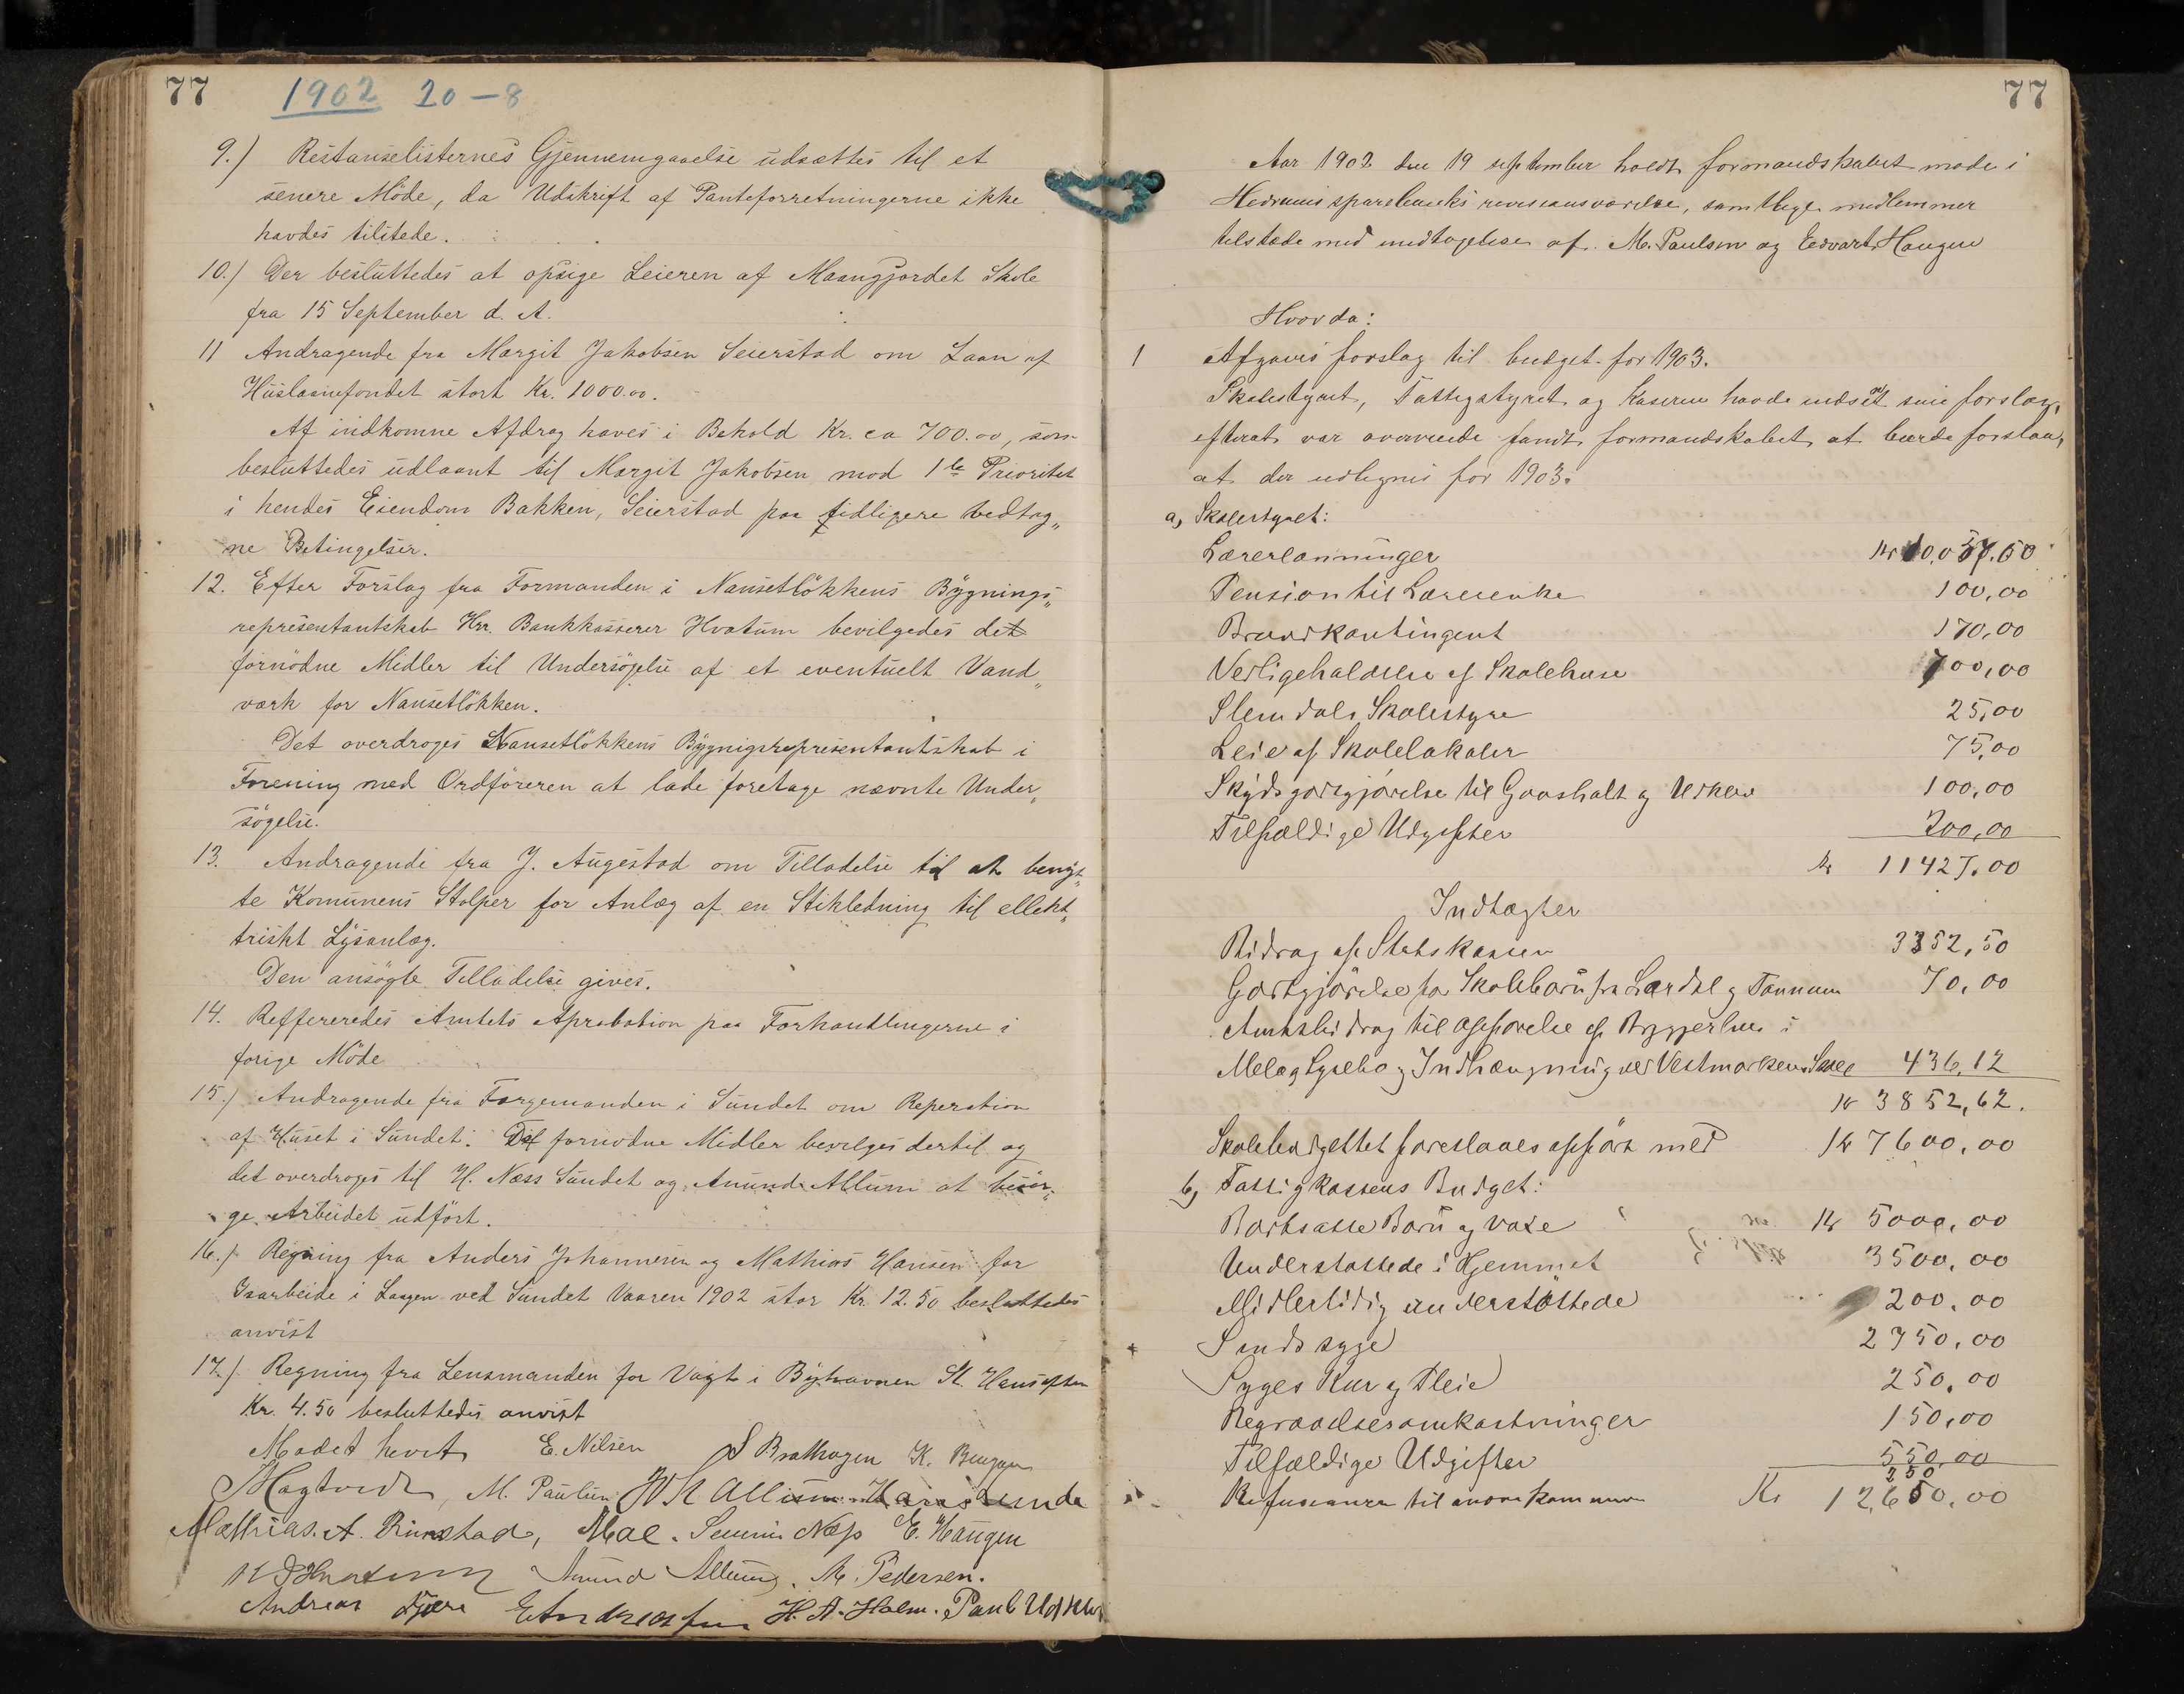 77 1902 20-8
9.) Restanselisternes Gjennemgaaelse udsættes til et
senere Möde, da Udskrift af Panteforretningerne ikke
havdes tilstede.
10.) Der besluttedes at opsige Leieren af Skole
fra 15 September d. A.
11 Andragende fra Margit Jakobsen Seierstad om Laan af
Huslaanefondet stort Kr. 1000.00.
Af indkomne Afdrag haves i Behold Kr. ca 700.00, som
besluttedes udlaant til Margit Jakobsen mod 1ste Prioritet
i hendes Eiendom Bakken, Seierstad paa tidligere vedtag„
ne Betingelser.
12. Efter Forslag fra Formanden i Nansetlökkens Bygnings„
representantskab Hrr. Bankkasserer Hvatum bevilgedes det
fornödne Midler til Undersögelse af et eventuelt Vand„
værk for Nansetlökken.
Det overdroges Nansetlökkens Bygnigsrepresentantskab i
Forening med Ordföreren at lade foretage nævnte Under„
sögelse.
13. Andragende fra J. Augestad om Tilladelse til at benyt„
te Komunens Stolper for Anlæg af en Stikledning til ellekt„
triskt Lysanlæg.
Den ansögte Tilladelse gives.
14. Reffereredes Amtets Aprobation paa Forhandlingerne i
forige Möde
15.) Andragende fra Færgemanden i Sundet om Reperation
af Huset i Sundet. fornödne Midler bevilges dertil og
det overdroges til H. Næss Sundet og Amund Allum at besör„
ge Arbeidet udfört.
16.) Regning fra Anders Johannesen og Mathias Hansen for
Isarbeide i Laagen ved Sundet Vaaren 1902 stor Kr. 12.50 besluttedes
anvist
17.) Regning fra Lensmanden for Vagt i Byhavnen St. Hansaften
Kr. 4.50 besluttedes anvist
Mödet hevet E. Nilsen S Brathagen K. Bugge
M. Paulsen Allum
Mathias. A. Rimstad, Moe. Severin Næss E. Haugen
Amund Allum, M. Pedersen.
Andreas H. A. Holm. Paul
77
Aar 1902 den 19 september holdt formandskabet möde i
Hedrums sparebanks revisionsværelse, samtlige medlemmer
tilstede med undtagelse af M. Paulsen og Edvart Haugen
Hvorda:
1 Afgaves forslag til budget for 1903.
Skolestyret, Fattigstyret og Kaserne havde indsendt sine forslag,
efterat var overveiede fandt formandskabet at burde forslaa,
at der udlignes for 1903.
a, Skolestyret:
Lærerlønninger Kr 10,057.50
Pension til Lærerenke 100,00
Brandkontingent 170,00
Vedligeholdelse af Skolehuse 700,00
Slemdals Skolestyre 25,00
Leie af Skolelokaler 75,00
Skydsgodtgjörelse til Gaasholt og 100,00
Tilfældige Udgifter 200,00
Kr 11427.00
Indtægter
Bidrag af Statskassen 3352,50
Godtgjörelse for Skolebarn fra Lardal og Tanum 70,00
Amtsbidrag til opförelse af Bryggerhus i
Melø og Lysebo og Indhængning ved Vestmarkens Skole 436,12
Kr 3852,62.
Skolebudgettet foreslaaes opfört med Kr 7600,00
b, Fattigkassens Budget:
Bortsatte Barn og Voxe Kr 5000,00
Understøttede i Hjemmet 3500,00
Midlertidig understöttede 200,00
Sindssyge 2750,00
Syges Kur og Pleie 250,00
Begravelsesomkostninger 150,00
Tilfældige Udgifter 550,00
250
Refusioner til andre kommuner Kr 12,650,00